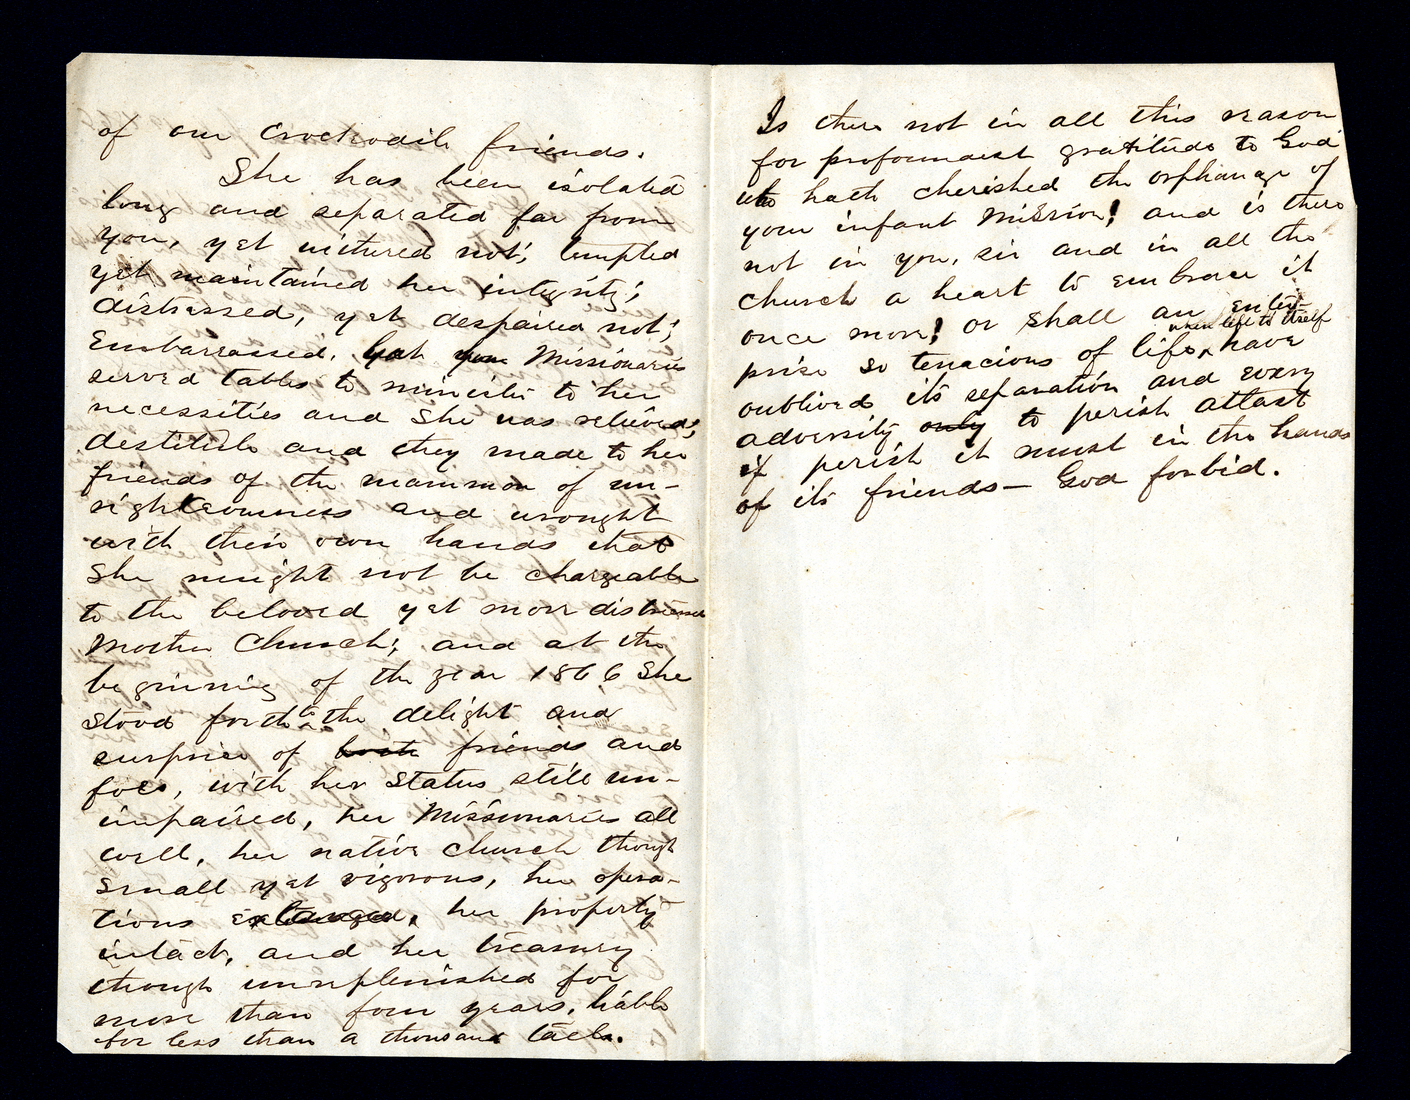 of our Crockodile friends.
She has been isolated
long and separated far from
you, yet withered not; tempted
yet maintained her integrity;
distressed, yet despaired not;
Embarrassed, but your Missionaries
served tables to minister to her
necessities and she was relieved;
destitute and they made to her
friends of the mammon of un-
righteousness and wrought
with their own hands that
she might not be chargeable
to the beloved yet more distressed
Mother Church; and at the
beginning of the year 1866 she
stood forth to the delight and
surprise of both friends and
foes, with her status still un-
impaired, her Missionaries all
well, her native church though
small yet vigorous, her opera-
tions extended, her property
intact, and her treasury
though unreplenished for
more than four years, liable
for less than a thousand taels.
Is there not in all this reason
for profoundest gratitude to God
who hath cherished the orphanage of
your infant Mission! and is there
not in you, sir and in all the
church a heart to embrace it
once more! or shall an enter-
prise so tenacious of life, when left to itself have
outlived its separation and every
adversity only to perish atlast
if perish it must in the hands
of its friends— God forbid.